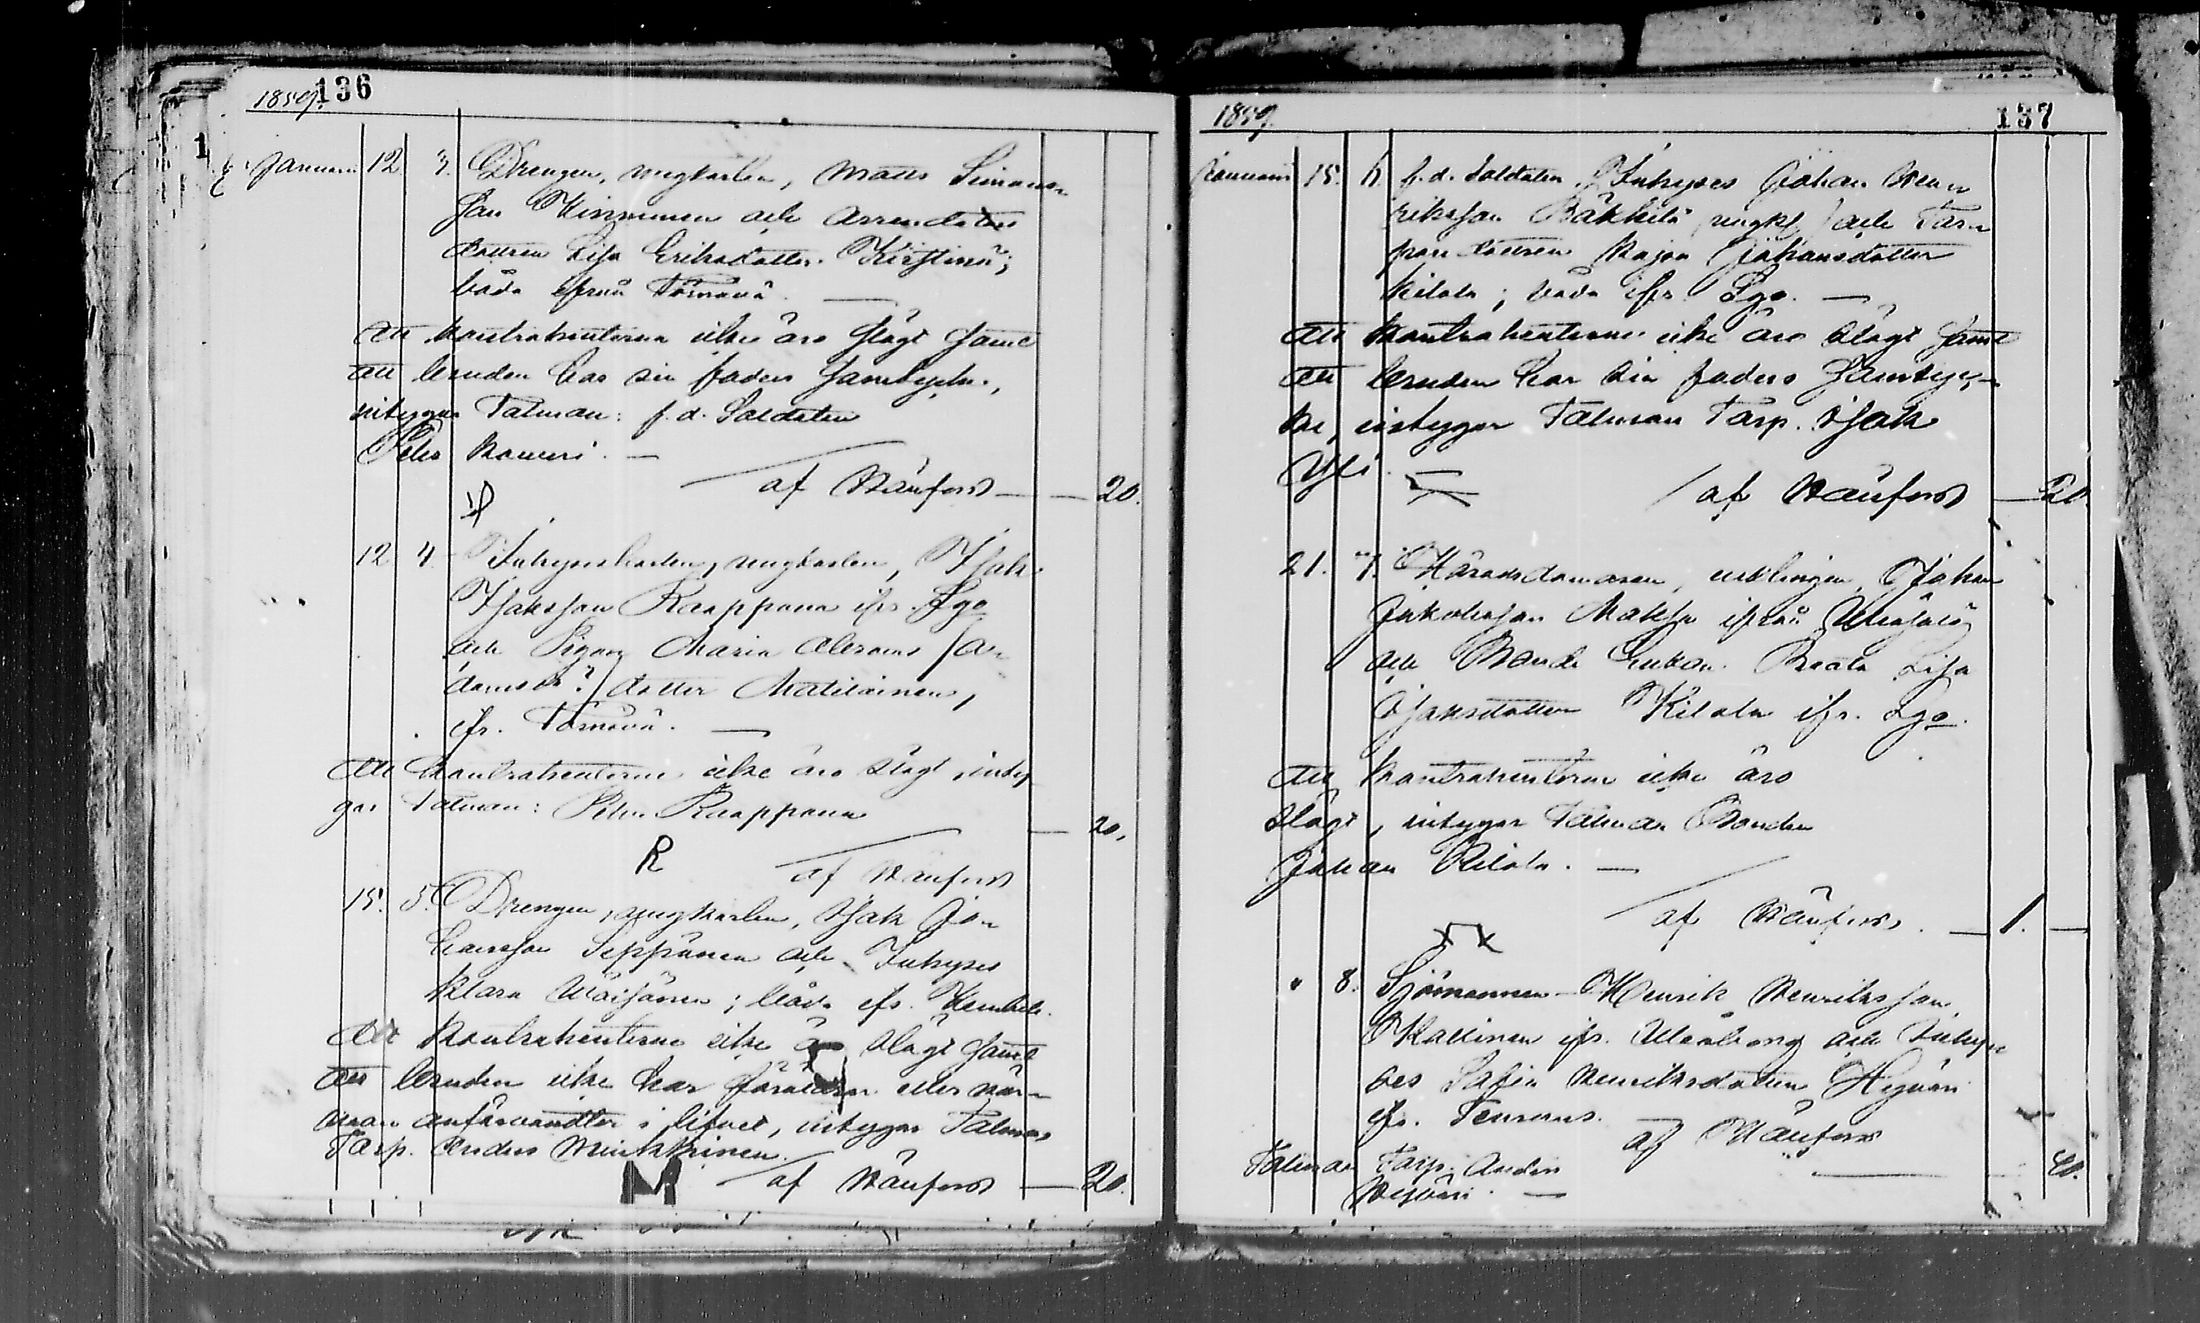 136
1859.
Januari 12 3. Drengen, ungkarlen, Matts Simons
son Kinnunen och Arrendators
dottren Lisa Eriksdotter
båda ifrån Törmävä. —
Att kontrahenterna icke äro slägt samt
att bruden har sin faders samtycke,
intygar Talman: f.d. Soldaten
Petter
af Wänforss — 20.
12 4 Inhyseskarlen, ungkarlen, Isak
Isaksson Karppanen ifr. Lgo
och Pigan Maria Abrams (A
dams ?) dotter Matilainen,
ifr. Törmävä. —
Att kontrahenterne icke äro slägt, inty
gar Talman: Petter Karppanen
— 20.
R
af Wänforss
15. 5. Drengen, ungkarlen, Isak Jo
hansson Seppänen och Inhyses
Klara Väisänen; båda ifr.
Att kontrahenterne icke äro slägt samt
att bruden icke har föräldrar eller när-
mare anförvandter i lifvet, intygar Talman
Torp. Anders Minkkinen.
M
af Wänforss — 20.
1859.
137
Januari 15. 6. f.d. Soldaten, Inhyses Johan Hen
riksson (ungk) och Tor
pare dottren Kajsa Johansdotter
Kilola; båda ifr. Lgo. —
Att kontrahenterne icke äro slägt samt
att bruden har sin faders samtyc-
ke, intygar Talman Torp. Isak
Yli
af Wänforss — 20.
21. 7. Häradsdomaren, enklingen, Johan
Jakobsson ifrån
och Bonde Enkan Beata Lisa
Isaksdotter Kilola ifr. Lgo.
Att kontrahenterne icke äro
slägt, intygar Talman Bonden
Johan Kilola. —
af Wänforss. — 1. —
" 8. Sjömannen Henrik Henriksson
Kallinen ifr. Uleåborg och Inhy
ses Sofia Henriksdotter
ifr.
af Wänforss
Talman Torp. Anders — 40.